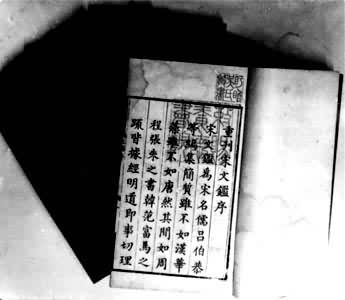 重刊宋文鑑序
宋文鑑為宋名儒呂伯恭
集簡質雖不如漢華
雖不如唐然其間如周
程張朱之書韓范富馬之
䟽皆據經明道即事切理